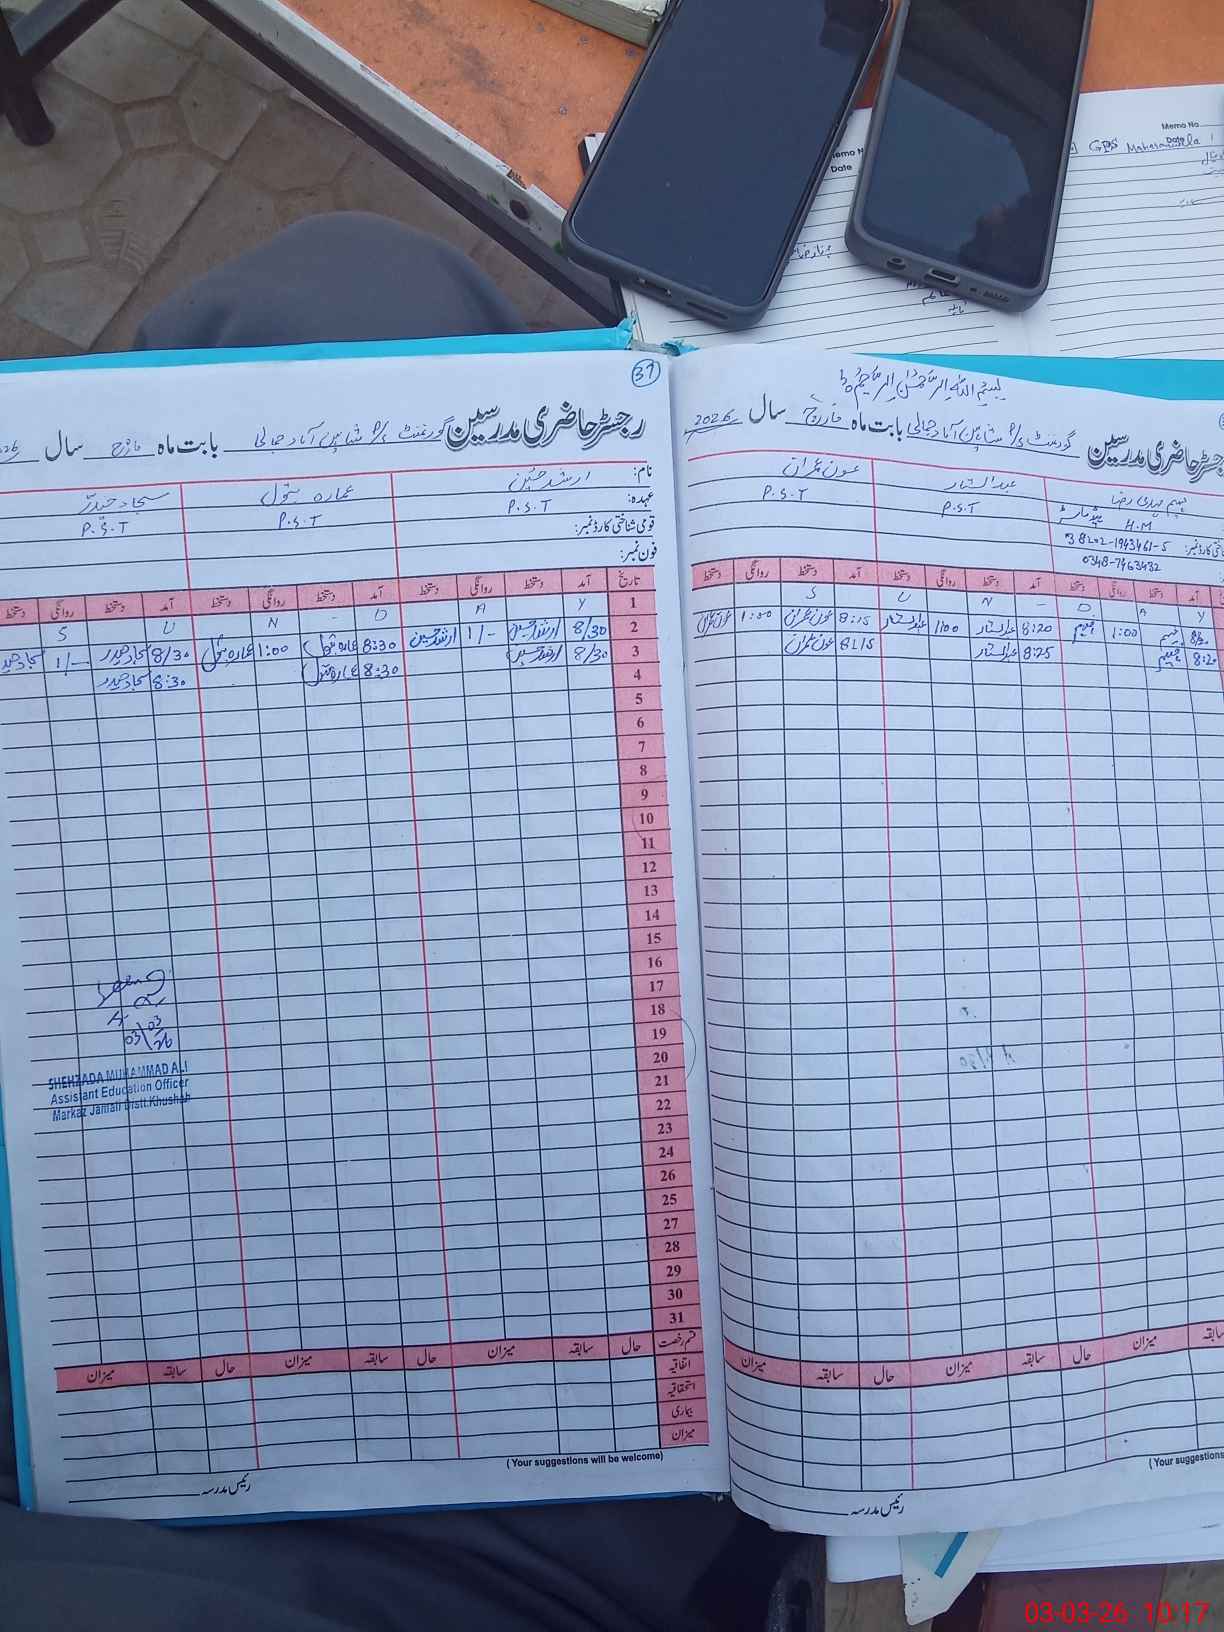 Memo No.
Date
GPS
Memo N
Date
37
رجسٹر حاضری مدرسین گورنمنٹ p/s شاہین آباد جمالی بابت ماہ مارچ سال 2026
نام: ارشد حسین عمارہ بتول سجاد حیدر
عہدہ: P.S.T P.S.T P.S.T
قومی شناختی کارڈ نمبر:
فون نمبر:
تاریخ آمد دستخط روانگی دستخط آمد دستخط روانگی دستخط آمد دستخط روانگی دستخط
1 Y A D - N U S
2 8/30 ارشد حسین 1/- ارشد حسین 8:30 عمارہ بتول 1:00 عمارہ بتول 8/30 سجاد حیدر 1/- سجاد حیدر
3 8/30 ارشد حسین 8:30 عمارہ بتول 8:30 سجاد حیدر
4
5
6
7
8
9
10
11
12
13
14
15
16
17
18
19
20
21
22
23
24
26
25
27
28
29
30
31
03/03/26
SHEHZADA MUHAMMAD ALI
Assistant Education Officer
Markaz Jamali Distt.Khushab
قسم رخصت حال سابقہ میزان حال سابقہ میزان حال سابقہ میزان
اتفاقیہ
استحقاقیہ
بیماری
میزان
(Your suggestions will be welcome)
رئیس مدرسہ
بسم اللہ الرحمٰن الرحیم
رجسٹر حاضری مدرسین گورنمنٹ p/s شاہین آباد جمالی بابت ماہ مارچ سال 2026
مہدی رضا عبدالستار عون عمران
ہیڈ ماسٹر H.M P.S.T P.S.T
38202-1943461-5
0348-7463432
آمد دستخط روانگی دستخط آمد دستخط روانگی دستخط آمد دستخط روانگی دستخط
Y A D - N U S
8/20 1:00 8:20 عبدالستار 1:00 عبدالستار 8:15 عون عمران 1:00 عون عمران
8:20 8:25 عبدالستار 8:15 عون عمران
سابقہ میزان حال سابقہ میزان حال سابقہ میزان
(Your suggestions
رئیس مدرسہ
03-03-26 10:17